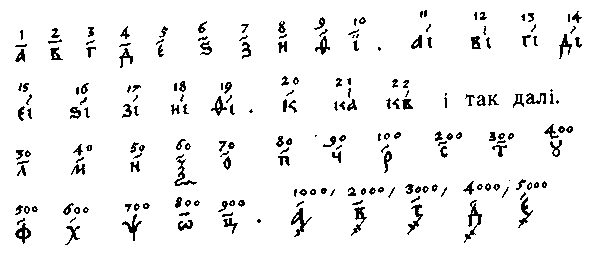 1 2 3 4 5 6 7 8 9 10 11 12 13 14
а в г д є ѕ з и ѳ і . аі ві гі ді
15 16 17 18 19 20 21 22
єі ѕі зі иі ѳі . к ка кв і так далі.
30 40 50 60 70 80 90 100 200 300 400
л м н ѯ о п ч р с т ꙋ
500 600 700 800 900 1000, 2000, 3000, 4000, 5000
ф х ѱ ѡ ц . ҂а ҂в ҂г ҂д ҂є